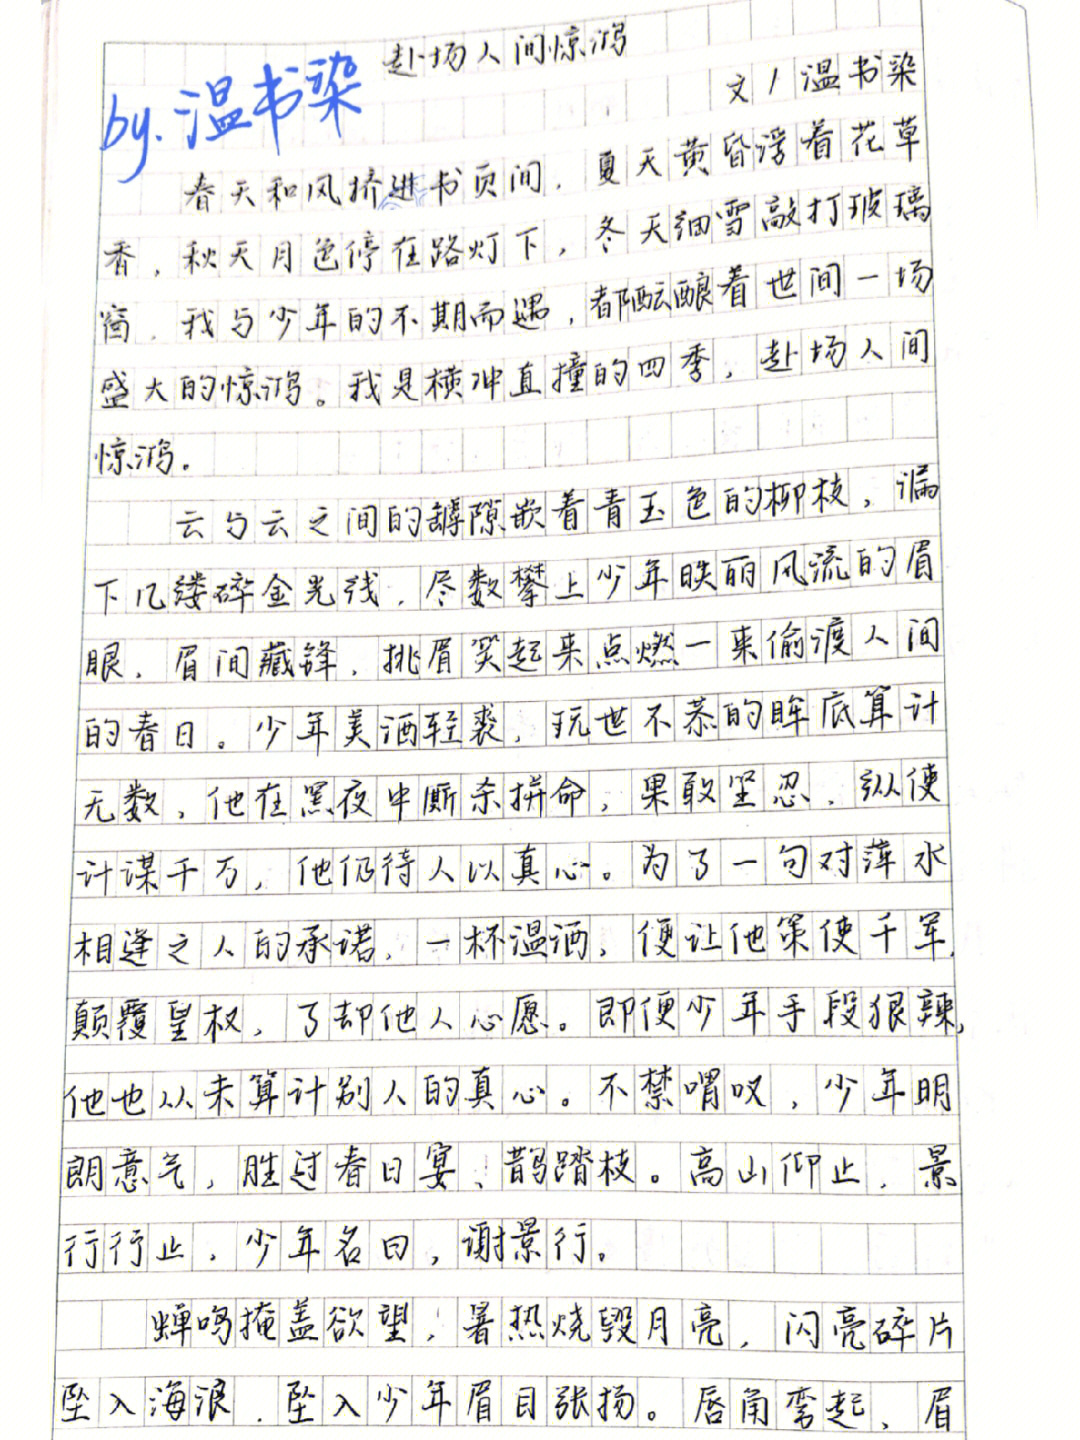 赴场人间惊鸿
by.温书染
文/温书染
春天和风挤进书页间，夏天黄昏浮着花草
香，秋天月色停在路灯下，冬天细雪敲打玻璃
窗，我与少年的不期而遇，都酝酿着世间一场
盛大的惊鸿。我是横冲直撞的四季，赴场人间
惊鸿。
云与云之间的罅隙嵌着青玉色的柳枝，漏
下几缕碎金光线，尽数攀上少年昳丽风流的眉
眼，眉间藏锋，挑眉笑起来点燃一来偷渡人间
的春日。少年美酒轻裘，玩世不恭的眸底算计
无数，他在黑夜中厮杀拼命，果敢坚忍，纵使
计谋千万，他仍待人以真心。为了一句对萍水
相逢之人的承诺，一杯温酒，便让他策使千军，
颠覆皇权，了却他人心愿。即便少年手段狠辣，
他也从未算计别人的真心。不禁喟叹，少年明
朗意气，胜过春日宴、鹊踏枝。高山仰止，景
行行止，少年名曰，谢景行。
蝉鸣掩盖欲望，暑热烧毁月亮，闪亮碎片
坠入海浪，坠入少年眉目张扬。唇角弯起，眉